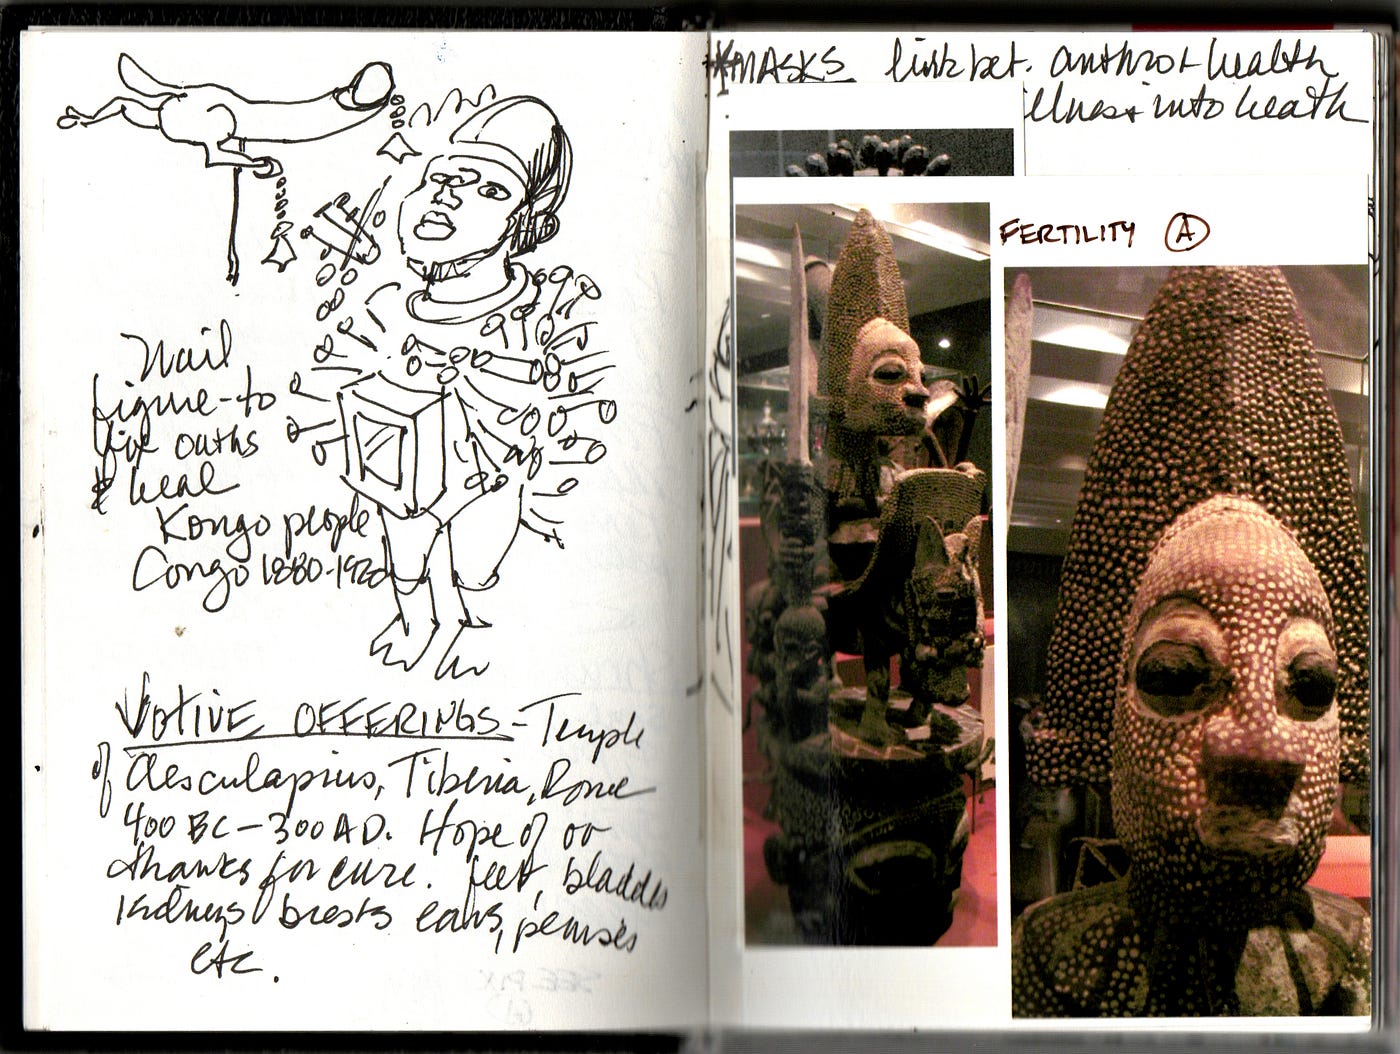 Nail
figure-to
fix oaths
& heal
Kongo people
Congo 1880-1920
VOTIVE OFFERINGS - Temple
of Aesculapius, Tiberia, Rome
400 BC - 300 AD. Hope of or
thanks for cure. feet, bladder
kidneys breasts ears, penises
etc.
*MASKS link bet. anthro + health
illness into heath
FERTILITY A
SEE PIX